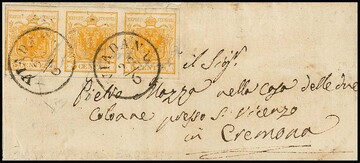 VIADANA
VIADANA
il Sigr.
Pietro Mazza nella Casa delle due
Colonne presso S. Vicenzo
in Cremona